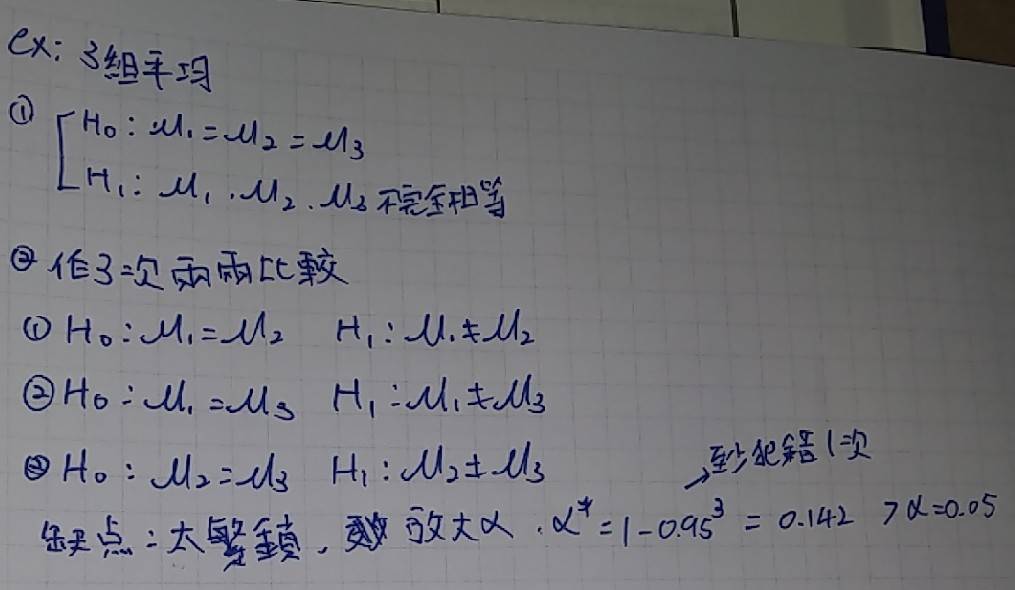 ex: 3組平均
① H₀: μ₁ = μ₂ = μ₃
H₁: μ₁、μ₂、μ₃ 不完全相等
② 作3次兩兩比較
① H₀: μ₁ = μ₂ H₁: μ₁ ≠ μ₂
② H₀: μ₁ = μ₃ H₁: μ₁ ≠ μ₃
③ H₀: μ₂ = μ₃ H₁: μ₂ ≠ μ₃
→至少犯錯1次
缺点:太繁鎖、放大α、α* = 1 - 0.95³ = 0.142 > α = 0.05